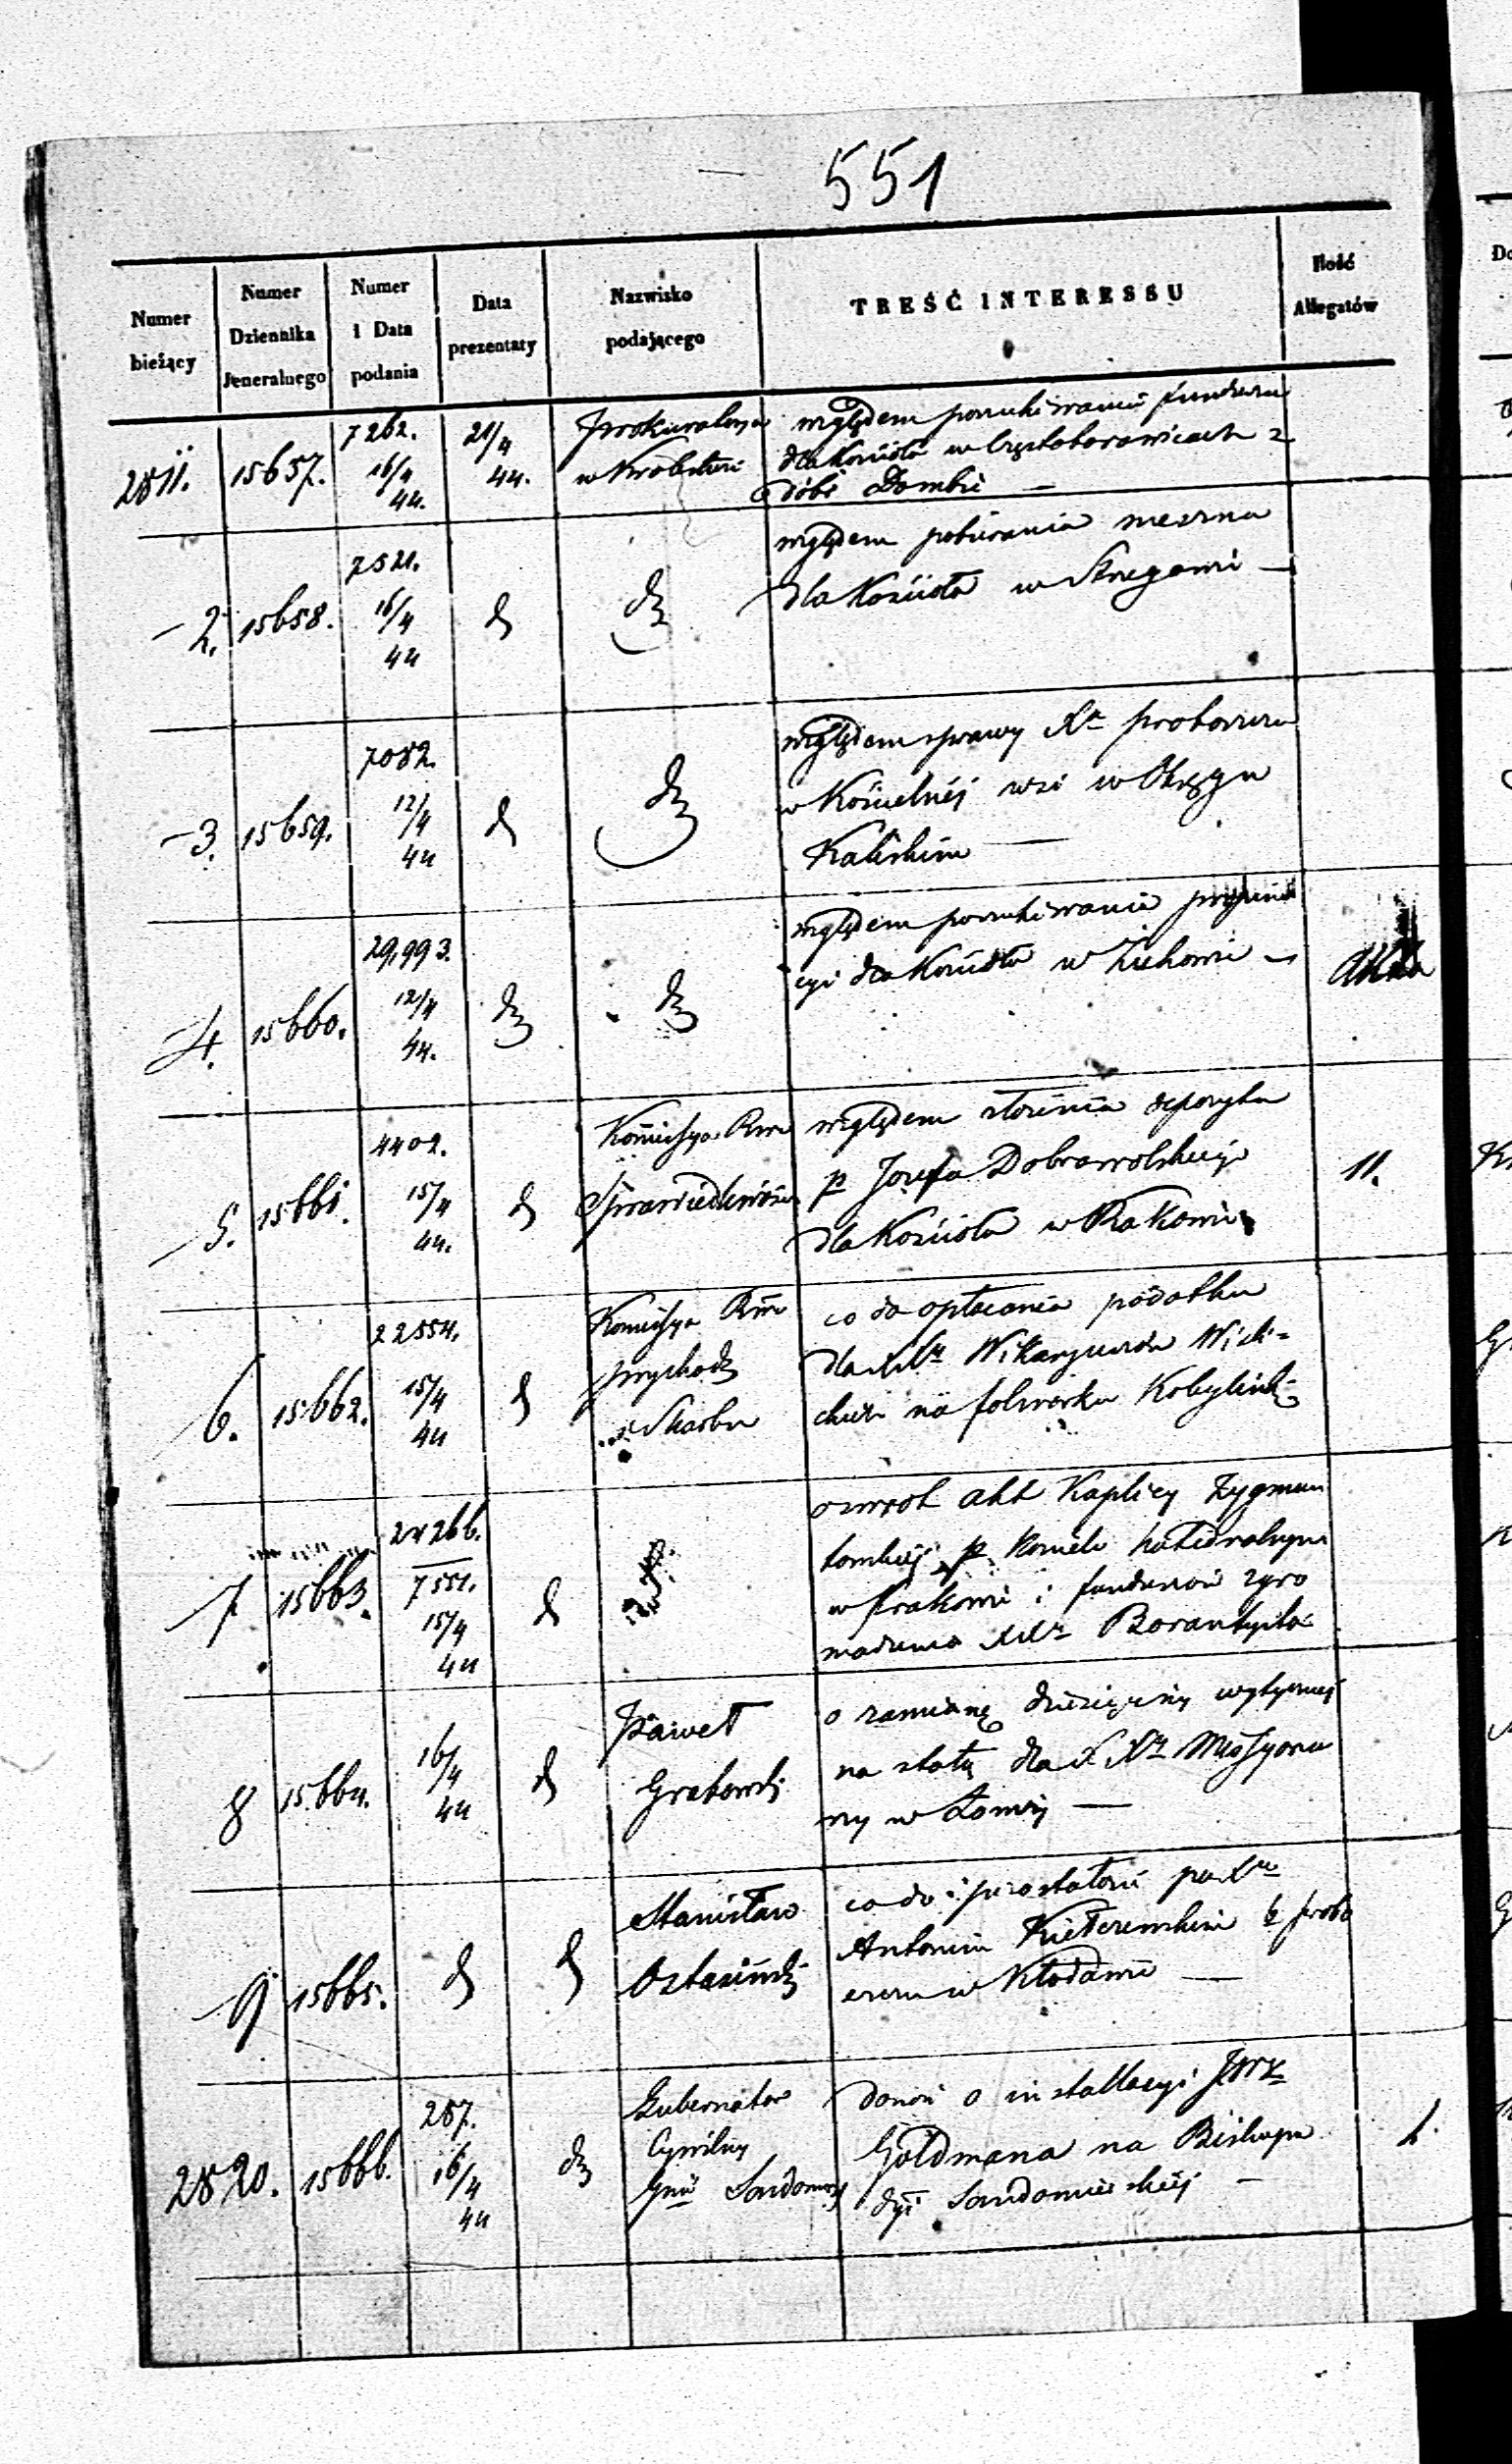 551
Numer bieżący
Numer Dziennika Jeneralnego
Numer i Data podania
Data prezentaty
Nazwisko podającego
TREŚĆ INTERESSU
Ilość Allegatów
2811. 15657. 7262. 16/4 44. 21/4 44. Prokuratorya w Królestwi
względem poszukiwania funduszu
dla Kościoła w Częstoborowicach z
dóbr Dombie —
— 2. 15658. 7521. 16/4 44 d dz
względem pobierania meszna
dla Kościoła w —
— 3. 15659. 7082. 12/4 44 d dz
względem sprawy Xa proboszcza
w Kościelnéj wsi w Okręgu
Kaliskim —
4. 15660. 29,993. 12/4 44. dz dz
względem poszukiwania propina
cyi dla Kościoła w Żukowie — Akta
5. 15661. 4402. 15/4 44. d Kommissya Rzą Sprawiedliwości
względem złożenia depozytu
p Józefa Dobrowolskiego
dla Kościoła w Rakowie 11.
6. 15662. 22554. 15/4 44 d Komissya Rzą przychodz i Skarbu
co do opłacania podatku
dla XXy Wikaryuszów
na folwarku
7 15663. 24266. 7551. 15/4 44 d dz
o zwrot akt Kaplicy Zygmun
towskiéj p Kościele katedralnym
w Krakowie i funduszów zgro
madzenia XXy
8 15664. 16/4 44 d Paweł Grabowski
o zamianę dziesięciny wytycznej
na stałą dla XXy Missyona
rzy w Łomży —
9 15665. d d Stanisław Ostasiński
co do pozostałości po Xu
Antonim b probo
szczu w Kłodawie —
2820. 15666. 287. 16/4 44 dz Gubernator Cywilny Gnii Sandomij
donosi o installacyi JWX
Goldmana na Biskupa
dyi Sandomierskiéj — 1.